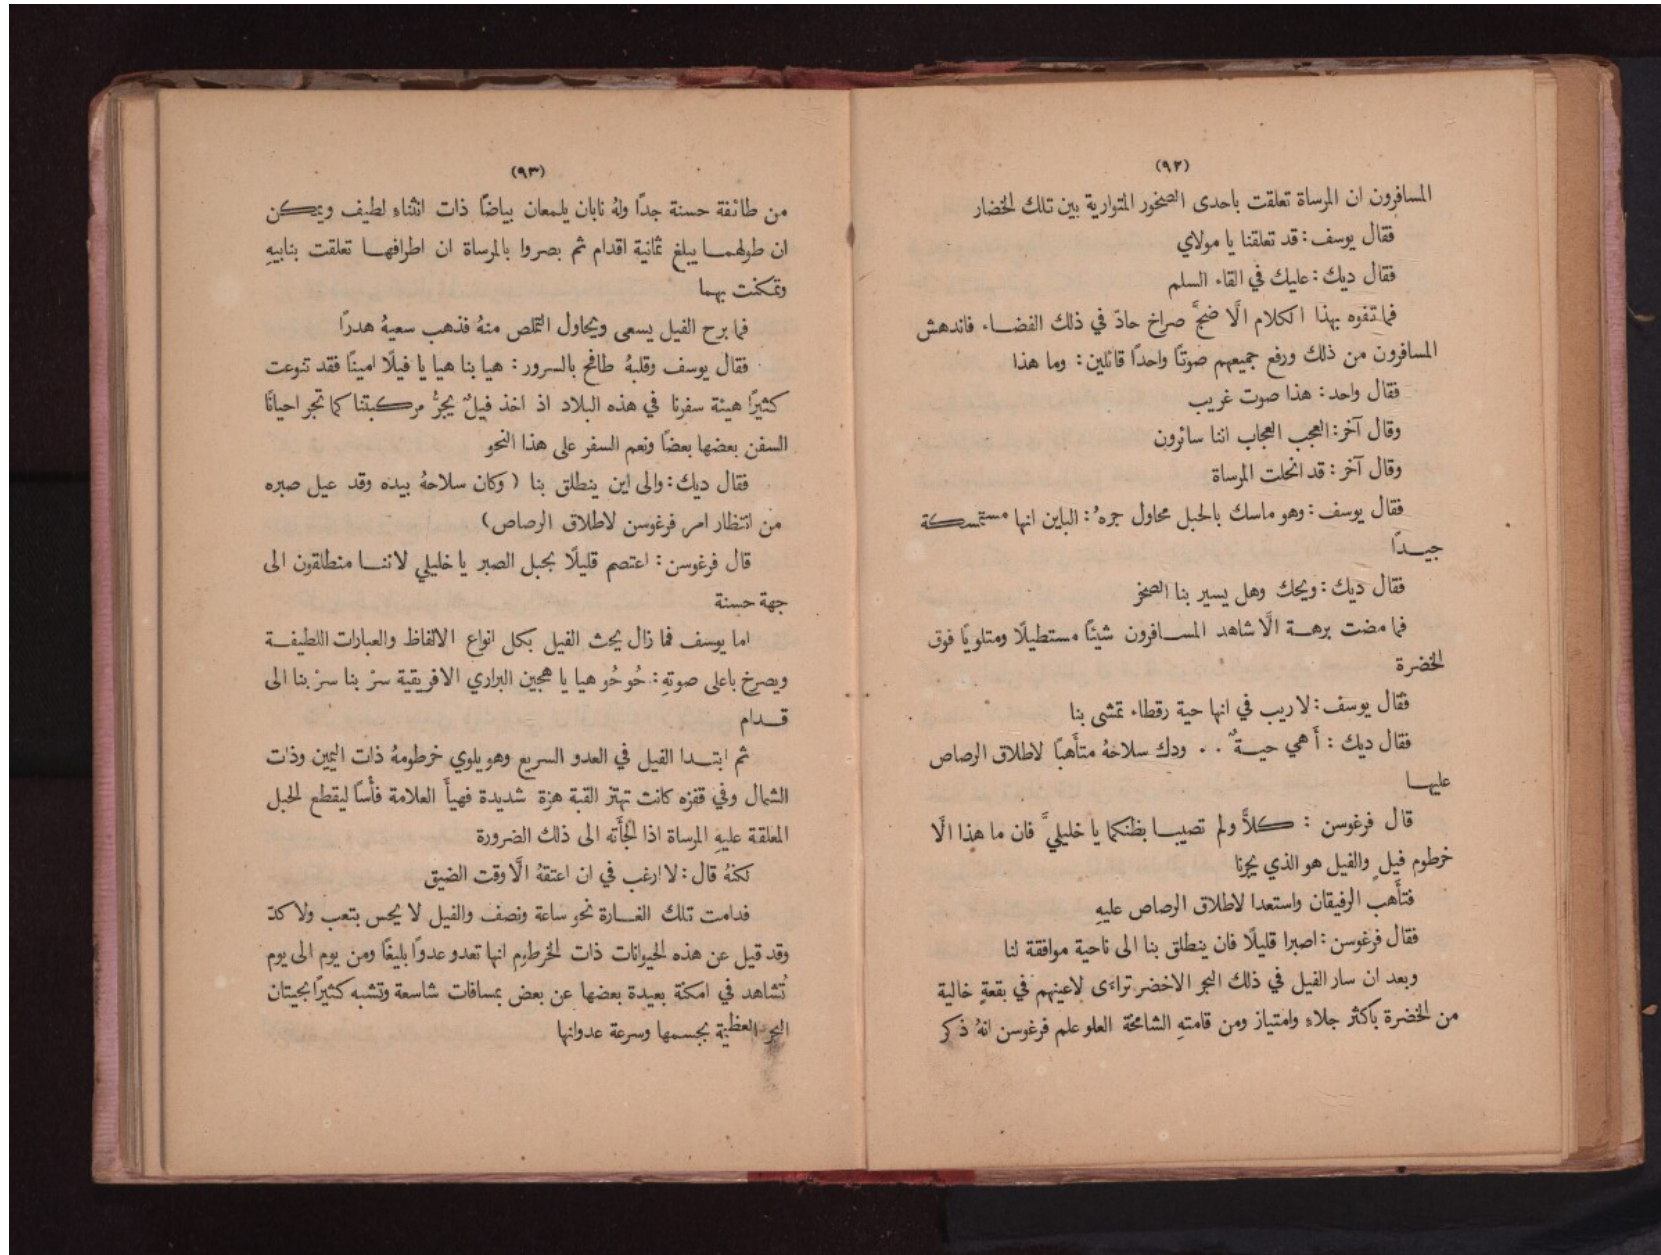 (٩٢)
المسافرون ان المرساة تعلقت باحدى الصخور المتوارية بين تلك الخضار
فقال يوسف: قد تعلقنا يا مولاي
فقال ديك: عليك في القاء السلم
فما تفوه بهذا الكلام الَّا ضجَّ صراخ حادّ في ذلك الفضاء فاندهش
المسافرون من ذلك ورفع جميعهم صوتًا واحدًا قائلين: وما هذا
فقال واحد: هذا صوت غريب
وقال آخر: العجب العجاب اننا سائرون
وقال آخر: قد انحلت المرساة
فقال يوسف: وهو ماسك بالحبل محاول جرهُ: الباين انها مستمسكة
جيدًا
فقال ديك: ويحك وهل يسير بنا الصخر
فما مضت برهة الَّا شاهد المسافرون شيئًا مستطيلًا ومتلويًا فوق
الخضرة
فقال يوسف: لا ريب في انها حية رقطاء تمشى بنا
فقال ديك: أَهي حيةٌ . . ودك سلاحهُ متأَهبًا لاطلاق الرصاص
عليها
قال فرغوسن: كلاَّ ولم تصيبا بظنكما يا خليليَّ فان ما هذا الَّا
خرطوم فيلٍ والفيل هو الذي يجرنا
فتأَهب الرفيقان واستعدا لاطلاق الرصاص عليهِ
فقال فرغوسن: اصبرا قليلًا فان ينطلق بنا الى ناحية موافقة لنا
وبعد ان سار الفيل في ذلك البحر الاخضر تراءَى لاعينهم في بقعةٍ خالية
من الخضرة باكثر جلاءٍ وامتياز ومن قامتهِ الشامخة العلو علم فرغوسن انهُ ذكر
(٩٣)
من طائفة حسنة جدًا ولهُ نابان يلمعان بياضًا ذات انثناءٍ لطيف ويمكن
ان طولهما يبلغ ثمانية اقدام ثم بصروا بالمرساة ان اطرافها تعلقت بنابيهِ
وتمكنت بهما
فما برح الفيل يسعى ويحاول التملص منهُ فذهب سعيهُ هدرًا
فقال يوسف وقلبهُ طافح بالسرور: هيا بنا هيا يا فيلًا امينًا فقد تنوعت
كثيرًا هيئة سفرنا في هذه البلاد اذ اخذ فيلٌ يجرُّ مركبتنا كما تجر احيانًا
السفن بعضها بعضًا ونعم السفر على هذا النحو
فقال ديك: والى اين ينطلق بنا (وكان سلاحهُ بيده وقد عيل صبره
من انتظار امر فرغوسن لاطلاق الرصاص)
قال فرغوسن: اعتصم قليلًا بحبل الصبر يا خليلي لاننا منطلقون الى
جهة حسنة
اما يوسف فما زال يحث الفيل بكل انواع الالفاظ والعبارات اللطيفة
ويصرخ باعلى صوتهِ: حُوحُو هيا يا هجين البراري الافريقية سرْ بنا سرْ بنا الى
قدام
ثم ابتدا الفيل في العدو السريع وهو يلوي خرطومهُ ذات اليمين وذات
الشمال وفي قفزه كانت تهتز القبة هزة شديدة فهيأَ العلامة فأْسًا ليقطع الحبل
المعلقة عليهِ المرساة اذا أَلجأَته الى ذلك الضرورة
لكنهُ قال: لا ارغب في ان اعتقهُ الَّا وقت الضيق
فدامت تلك الغارة نحو ساعة ونصف والفيل لا يحس بتعب ولا كدّ
وقد قيل عن هذه الحيوانات ذات الخرطوم انها تعدو عدوًا بليغًا ومن يوم الى يوم
تُشاهد في امكنة بعيدة بعضها عن بعض بمسافات شاسعة وتشبه كثيرًا بحيتان
البحر العظيمة بجسمها وسرعة عدوانها